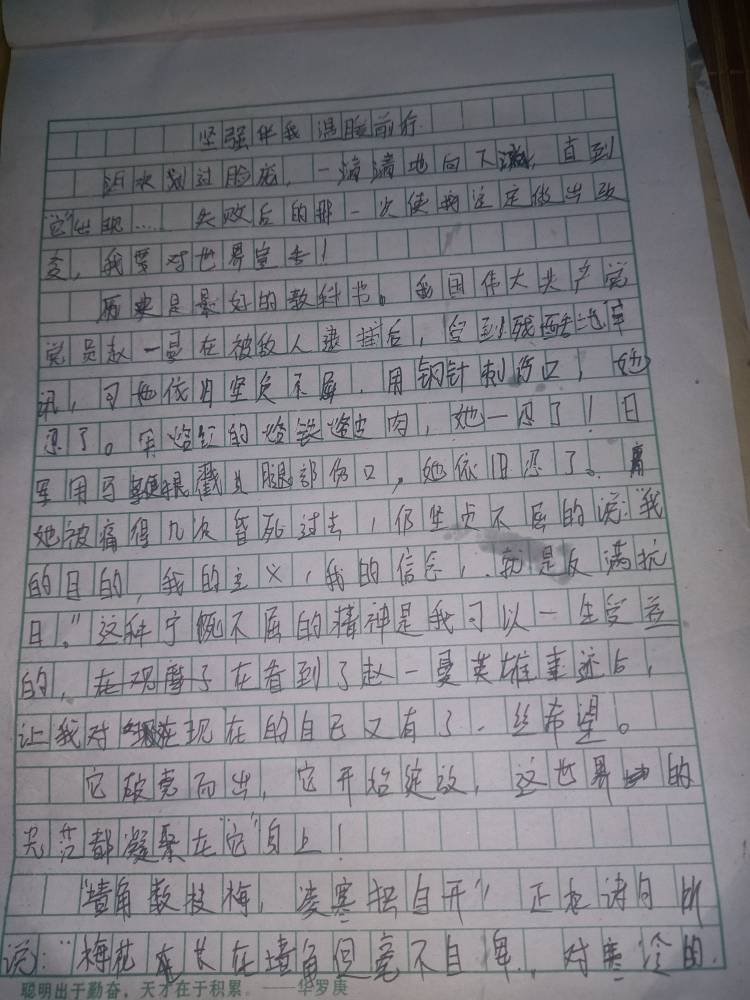 坚强伴我 温暖前行
泪水划过脸庞,一滴滴地向下滋,直到
“它”出现……失败后的那一次使我注定做出改
变,我要对世界宣告!
历史是最好的教科书。我国伟大共产党
党员赵一曼在被敌人逮捕后,受到残酷地审
讯,可她依旧坚贞不屈,用钢针刺伤口,她
忍了。用烙红的烙铁烙皮肉,她一忍了!日
军用马鞭根戳其腿部伤口,她依旧忍了。
她被痛得几次昏死过去,仍坚贞不屈的说:“我
的目的,我的主义,我的信念,就是反满抗
日。”这种宁概不屈的精神是我可以一生受益
的,在看到了赵一曼英雄事迹后,
让我对现在的自己又有了一丝希望。
它破壳而出,它开始绽放,这世界的
光芒都凝聚在“它”身上!
“墙角数枝梅,凌寒独自开”正如诗句所
说:“梅花生长在墙角但毫不自卑,对寒冷的
聪明出于勤奋,天才在于积累。——华罗庚